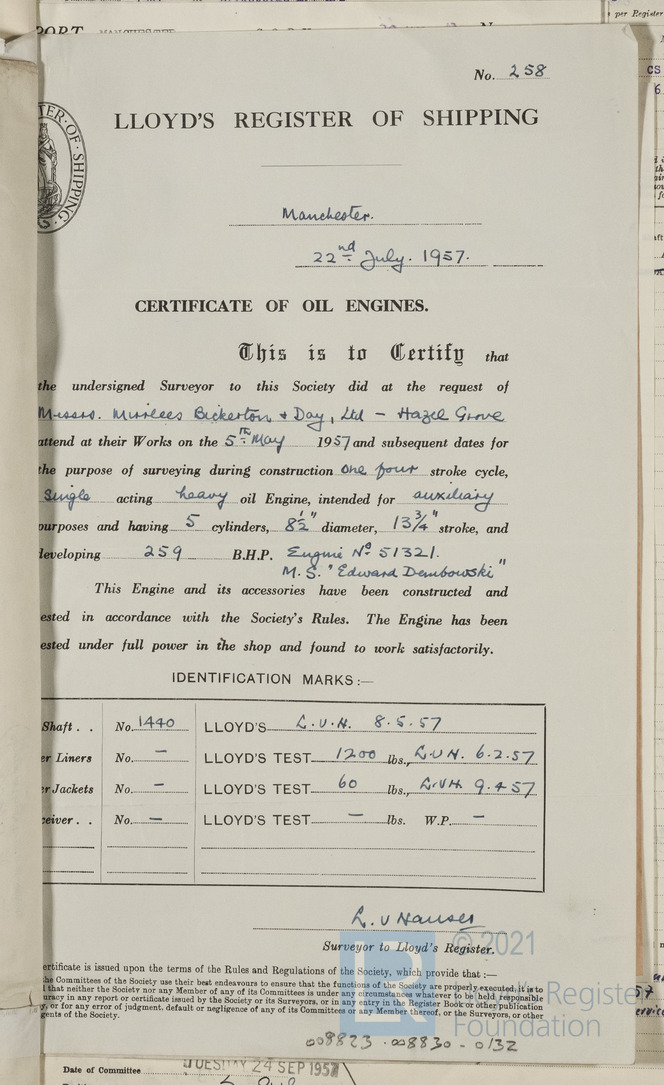 per Register
PORT MANCHESTER
No. 258
LLOYD'S REGISTER OF SHIPPING
TER · OF · SHIPPING
Manchester.
22nd July. 1957.
CERTIFICATE OF OIL ENGINES.
This is to Certify that
the undersigned Surveyor to this Society did at the request of
Messrs. Mirrlees Bickerton & Day, Ltd – Hazel Grove
attend at their Works on the 5TH May 1957 and subsequent dates for
the purpose of surveying during construction one four stroke cycle,
Single acting heavy oil Engine, intended for auxiliary
purposes and having 5 cylinders, 8½" diameter, 13¾" stroke, and
developing 259 B.H.P. Engine No 51321.
M.S. "Edward Dembowski"
This Engine and its accessories have been constructed and
ested in accordance with the Society's Rules. The Engine has been
ested under full power in the shop and found to work satisfactorily.
IDENTIFICATION MARKS:—
Shaft . . No. 1440 LLOYD'S L.V.H. 8.5.57
er Liners No. – LLOYD'S TEST 1200 lbs., L.V.H. 6.2.57
er Jackets No. – LLOYD'S TEST 60 lbs., L.V.H. 9.4.57
ceiver . . No. – LLOYD'S TEST – lbs. W.P. –
L. V Hauser
Surveyor to Lloyd's Register.
ertificate is issued upon the terms of the Rules and Regulations of the Society, which provide that :—
he Committees of the Society use their best endeavours to ensure that the functions of the Society are properly executed, it is to
l that neither the Society nor any Member of any of its Committees is under any circumstances whatever to be held responsible
uracy in any report or certificate issued by the Society or its Surveyors, or in any entry in the Register Book or other publication
y, or for any error of judgment, default or negligence of any of its Committees or any Member thereof, or the Surveyors, or other
gents of the Society.
© 2021
Lloyd's Register
Foundation
008823-008830-0132
Date of Committee TUESDAY 24 SEP 1957